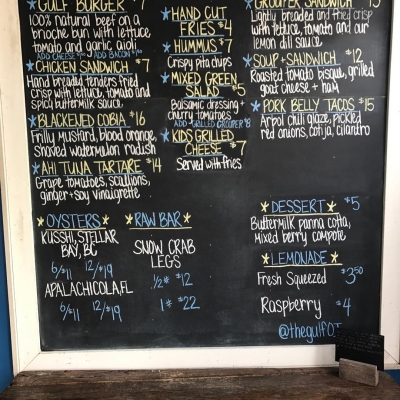 GULF BURGER $7
100% natural beef on a
brioche bun with lettuce,
tomato and garlic aioli
ADD CHEESE ADD BACON
CHICKEN SANDWICH $7
Hand breaded tenders fried
crisp with lettuce, tomato and
spicy buttermilk sauce
BLACKENED COBIA $16
Frilly mustard, blood orange,
shaved watermelon radish
AHI TUNA TARTARE $14
Grape tomatoes, scallions,
ginger + soy vinaigrette
HAND CUT
FRIES $4
HUMMUS $7
Crispy pita chips
MIXED GREEN
SALAD $5
Balsamic dressing +
cherry tomatoes
ADD GRILLED GROUPER $8
KIDS GRILLED
CHEESE $7
Served with fries
GROUPER SANDWICH $15
Lightly breaded and fried crisp
with lettuce, tomato and our
lemon dill sauce
SOUP + SANDWICH $12
Roasted tomato bisque, grilled
goat cheese + ham
PORK BELLY TACOS $15
Arbol chili glaze, pickled
red onions, cotija, cilantro
OYSTERS
KUSSHI, STELLAR
BAY, BC
6/$11 12/$19
APALACHICOLA, FL
6/$11 12/$19
RAW BAR
SNOW CRAB
LEGS
1/2# $12
1# $22
DESSERT $5
Buttermilk panna cotta,
mixed berry compote
LEMONADE
Fresh Squeezed $3.50
Raspberry $4
@thegulfOT